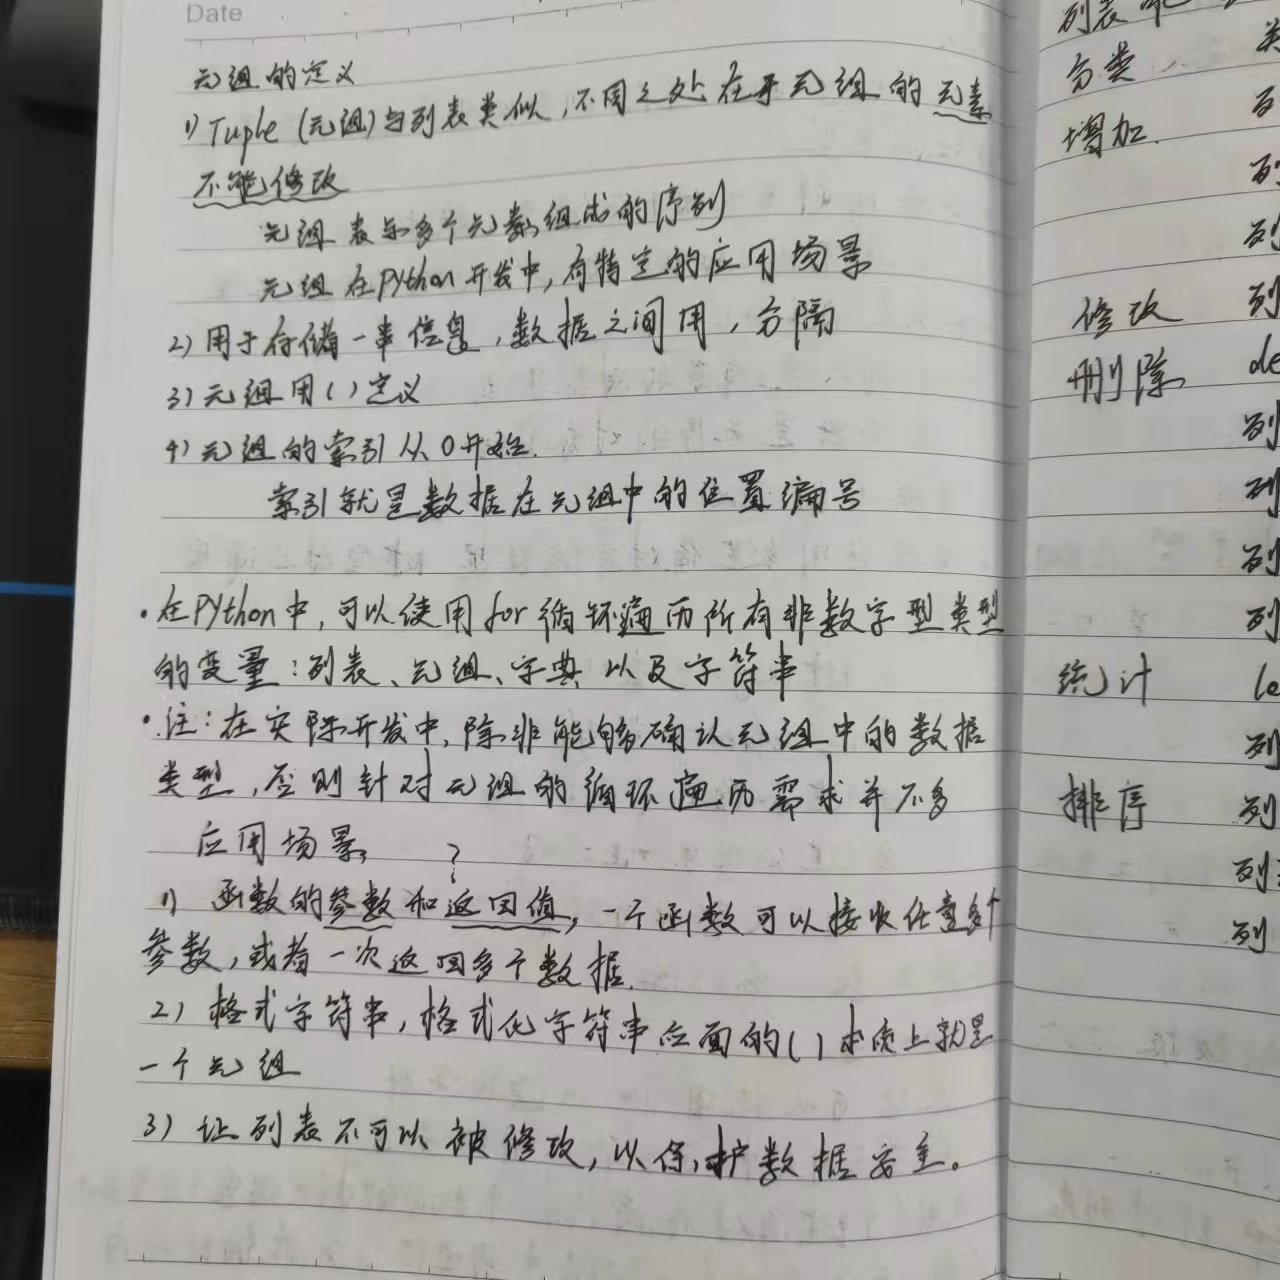 Date
元组的定义
1) Tuple (元组) 与列表类似,不同之处在于元组的元素
不能修改
元组表示多个元素组成的序列
元组在Python开发中,有特定的应用场景
2) 用于存储一串信息,数据之间用,分隔
3) 元组用()定义
4) 元组的索引从0开始.
索引就是数据在元组中的位置编号
·在Python中,可以使用for循环遍历所有非数字型类型
的变量:列表、元组、字典以及字符串
·注:在实际开发中,除非能够确认元组中的数据
类型,否则针对元组的循环遍历需求并不多
应用场景:
?
1) 函数的参数和返回值,一个函数可以接收任意多个
参数,或者一次返回多个数据.
2) 格式字符串,格式化字符串后面的()本质上就是
一个元组
3) 让列表不可以被修改,以保护数据安全。
列表
分类
增加.
列
列
修改 列
删除 de
列
列
列
列
统计 le
列
排序 列
列
列